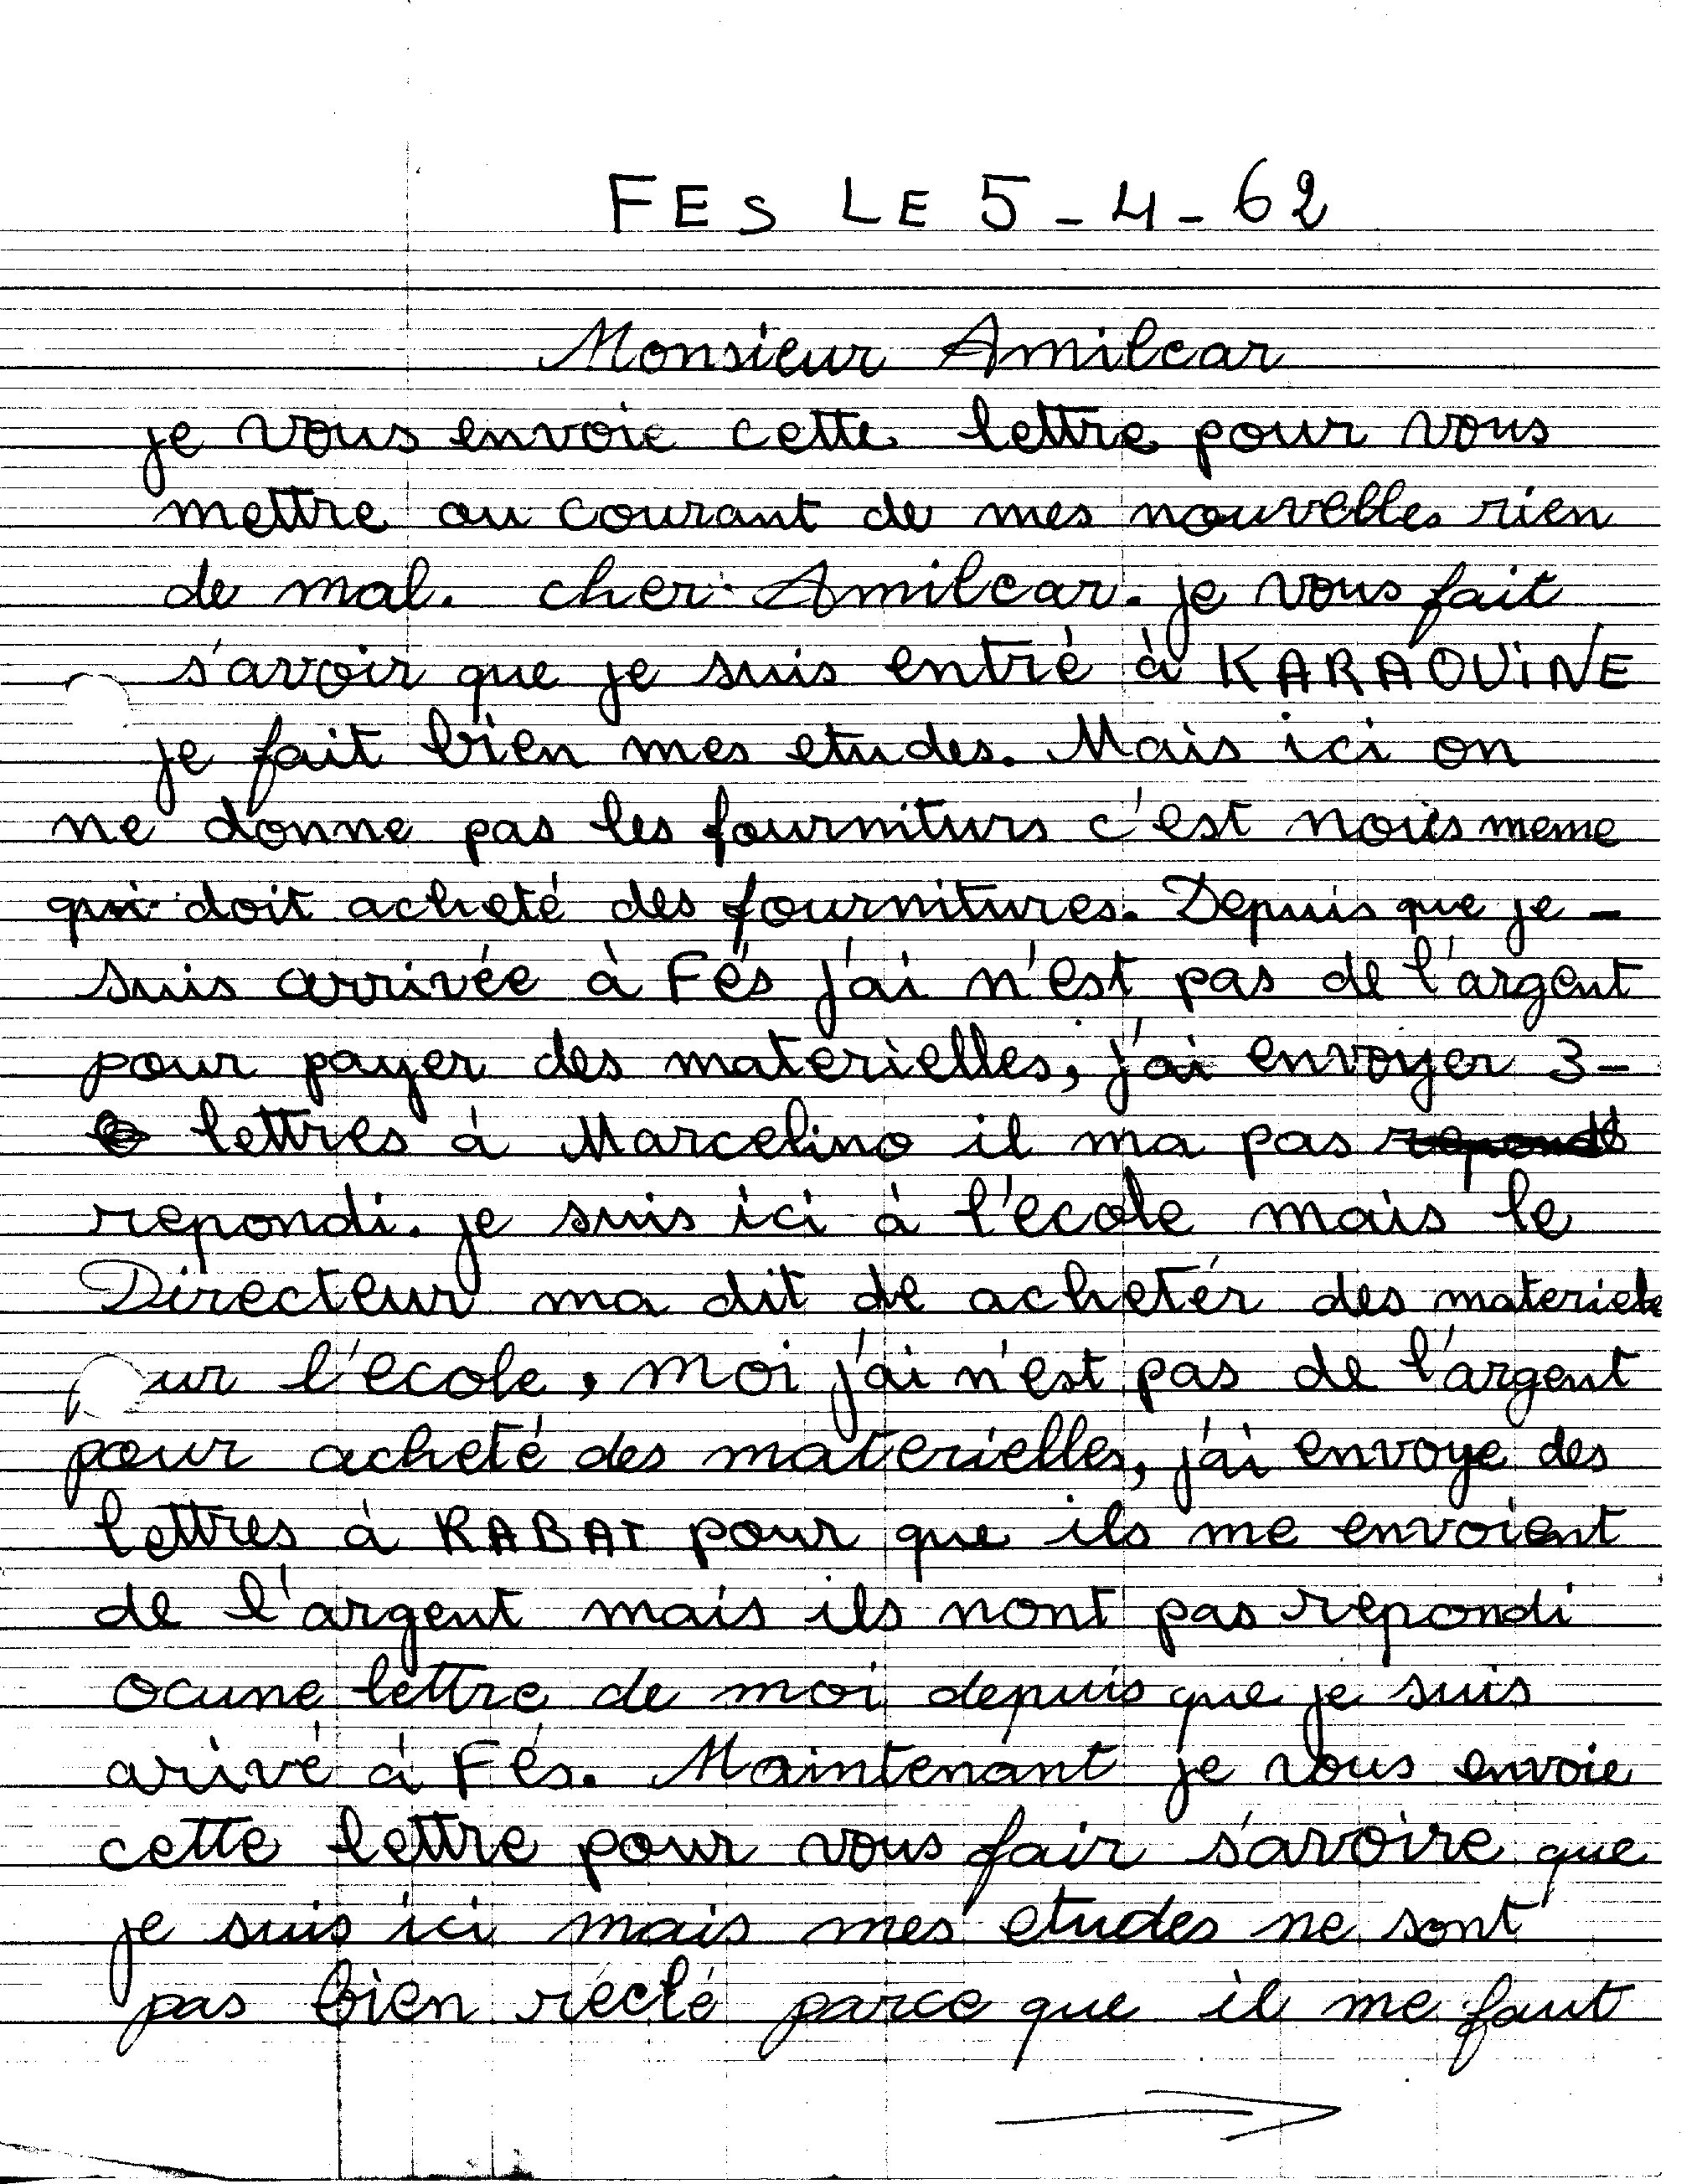 FES LE 5-4-62
Monsieur Amilcar
je vous envoie cette lettre pour vous
mettre au courant de mes nouvelles rien
de mal. cher Amilcar. je vous fait
s'avoir que je suis entré à KARAOUiNE
je fait bien mes etudes. Mais ici on
ne donne pas les fourniturs c'est nous meme
qui doit acheté des fournitures. Depuis que je -
suis arrivée à Fés j'ai n'est pas de l'argent
pour payer des materielles, j'ai envoyer 3-
lettres à Marcelino il ma pas
repondi. je suis ici à l'école mais le
Directeur ma dit de achetér des materiels
pour l'école, moi j'ai n'est pas de l'argent
pour acheté des materielles, j'ai envoye des
lettres à RABAT pour que ils me envoient
de l'argent mais ils nont pas repondi
ocune lettre de moi depuis que je suis
arivé à Fés. Maintenant je vous envoie
cette lettre pour vous fair s'avoire que
je suis ici mais mes etudes ne sont
pas bien réclé parce que il me faut